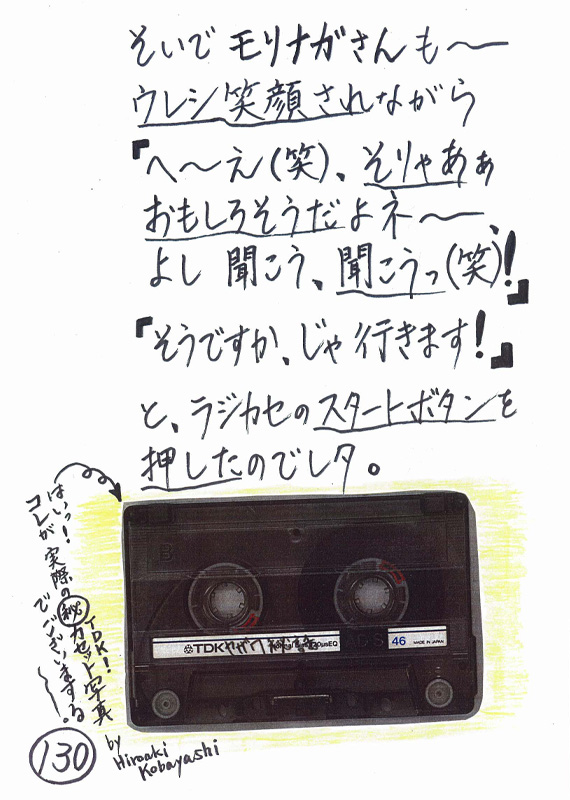 そいで モリナガさん も〜
ウレシ笑顔されながら
『へ〜え(笑)、そりゃあぁ
おもしろそうだよネ〜、
よし 聞こう、聞こうっ(笑)!』
『そうですか、じゃ 行きます!』
と、ラジカセのスタートボタンを
押したのでしタ。
はいっ!
コレが実際の㊙カセット写真
TDK!
でございまする〜。
B
TDK
46
MADE IN JAPAN
130
by
Hiroaki
Kobayashi